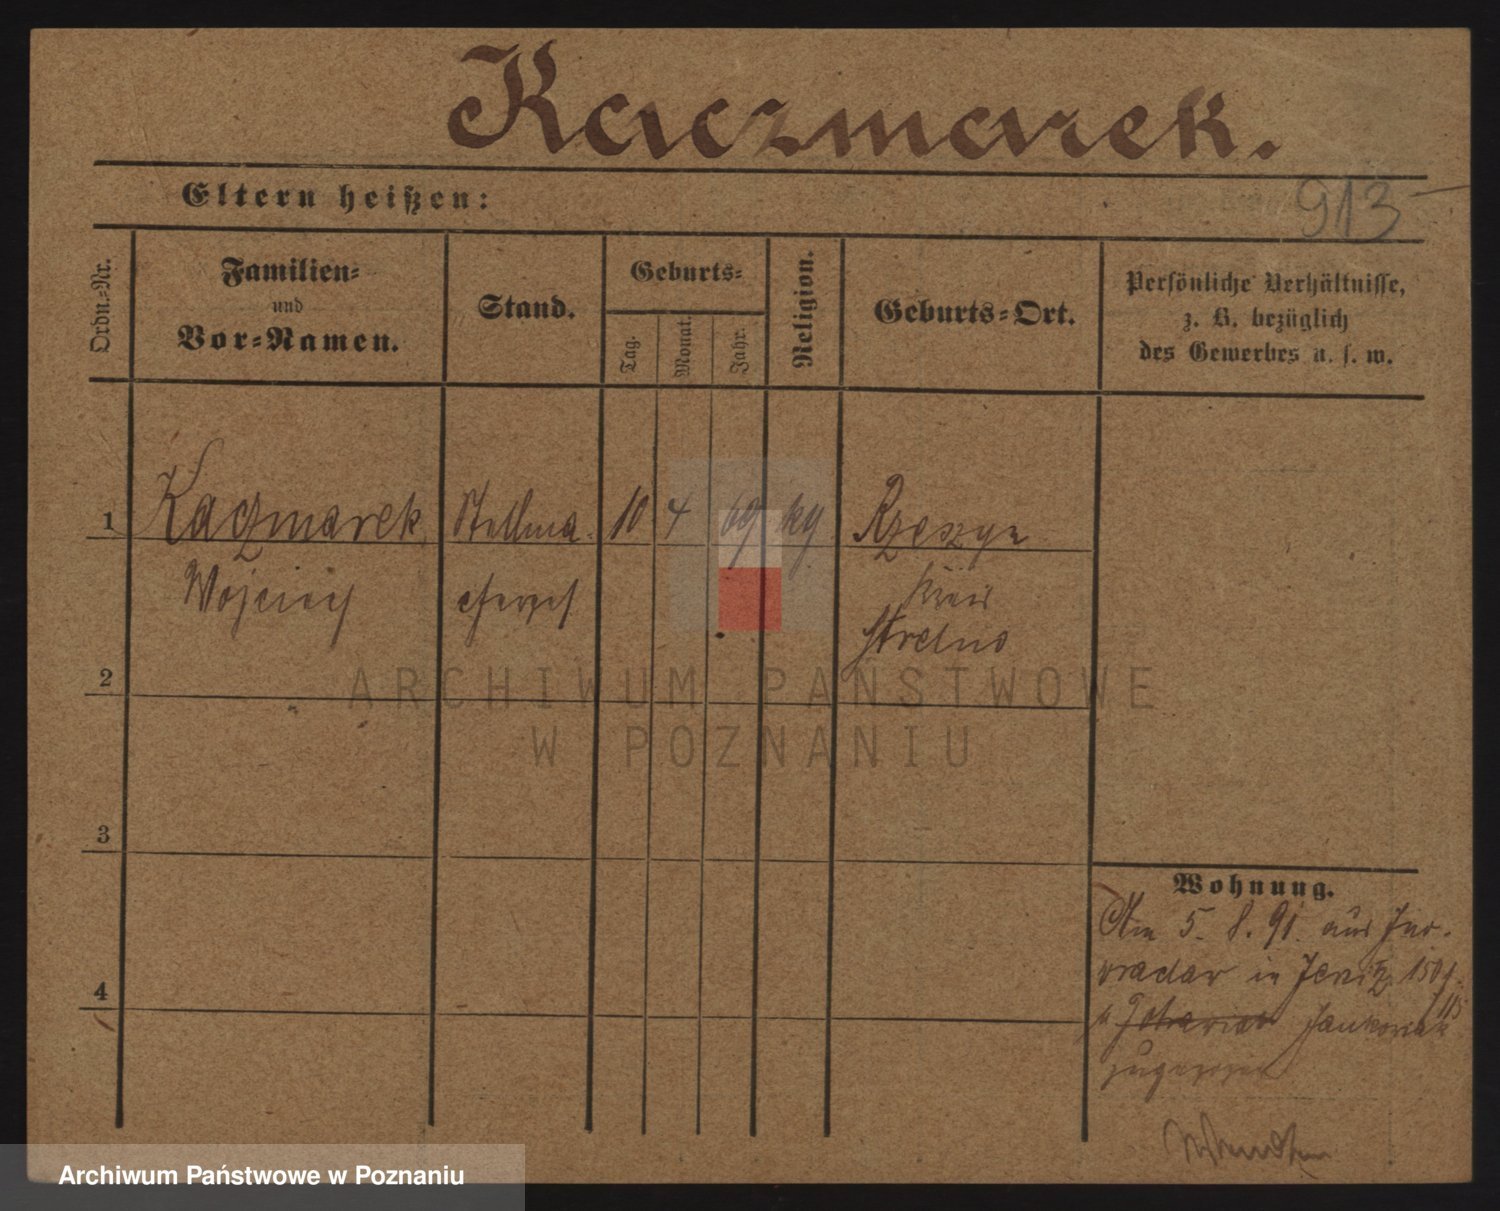 Kaczmarek.
Eltern heißen:
913
Ordn.-Nr.
Familien-
und
Vor-Namen.
Stand.
Geburts-
Tag.
Monat.
Jahr.
Religion.
Geburts-Ort.
Persönliche Verhältnisse,
z. B. bezüglich
des Gewerbes u. s. w.
1
Kaczmarek
Stellma-
10
4
69
kg
Rzeszyn
Wojciech
Kreis
Strelno
2
ARCHIWUM PAŃSTWOWE
W POZNANIU
3
Wohnung.
Am 5. 8. 91. aus Ino-
wraclaw in Jersitz
4
zugezogen
Archiwum Państwowe w Poznaniu